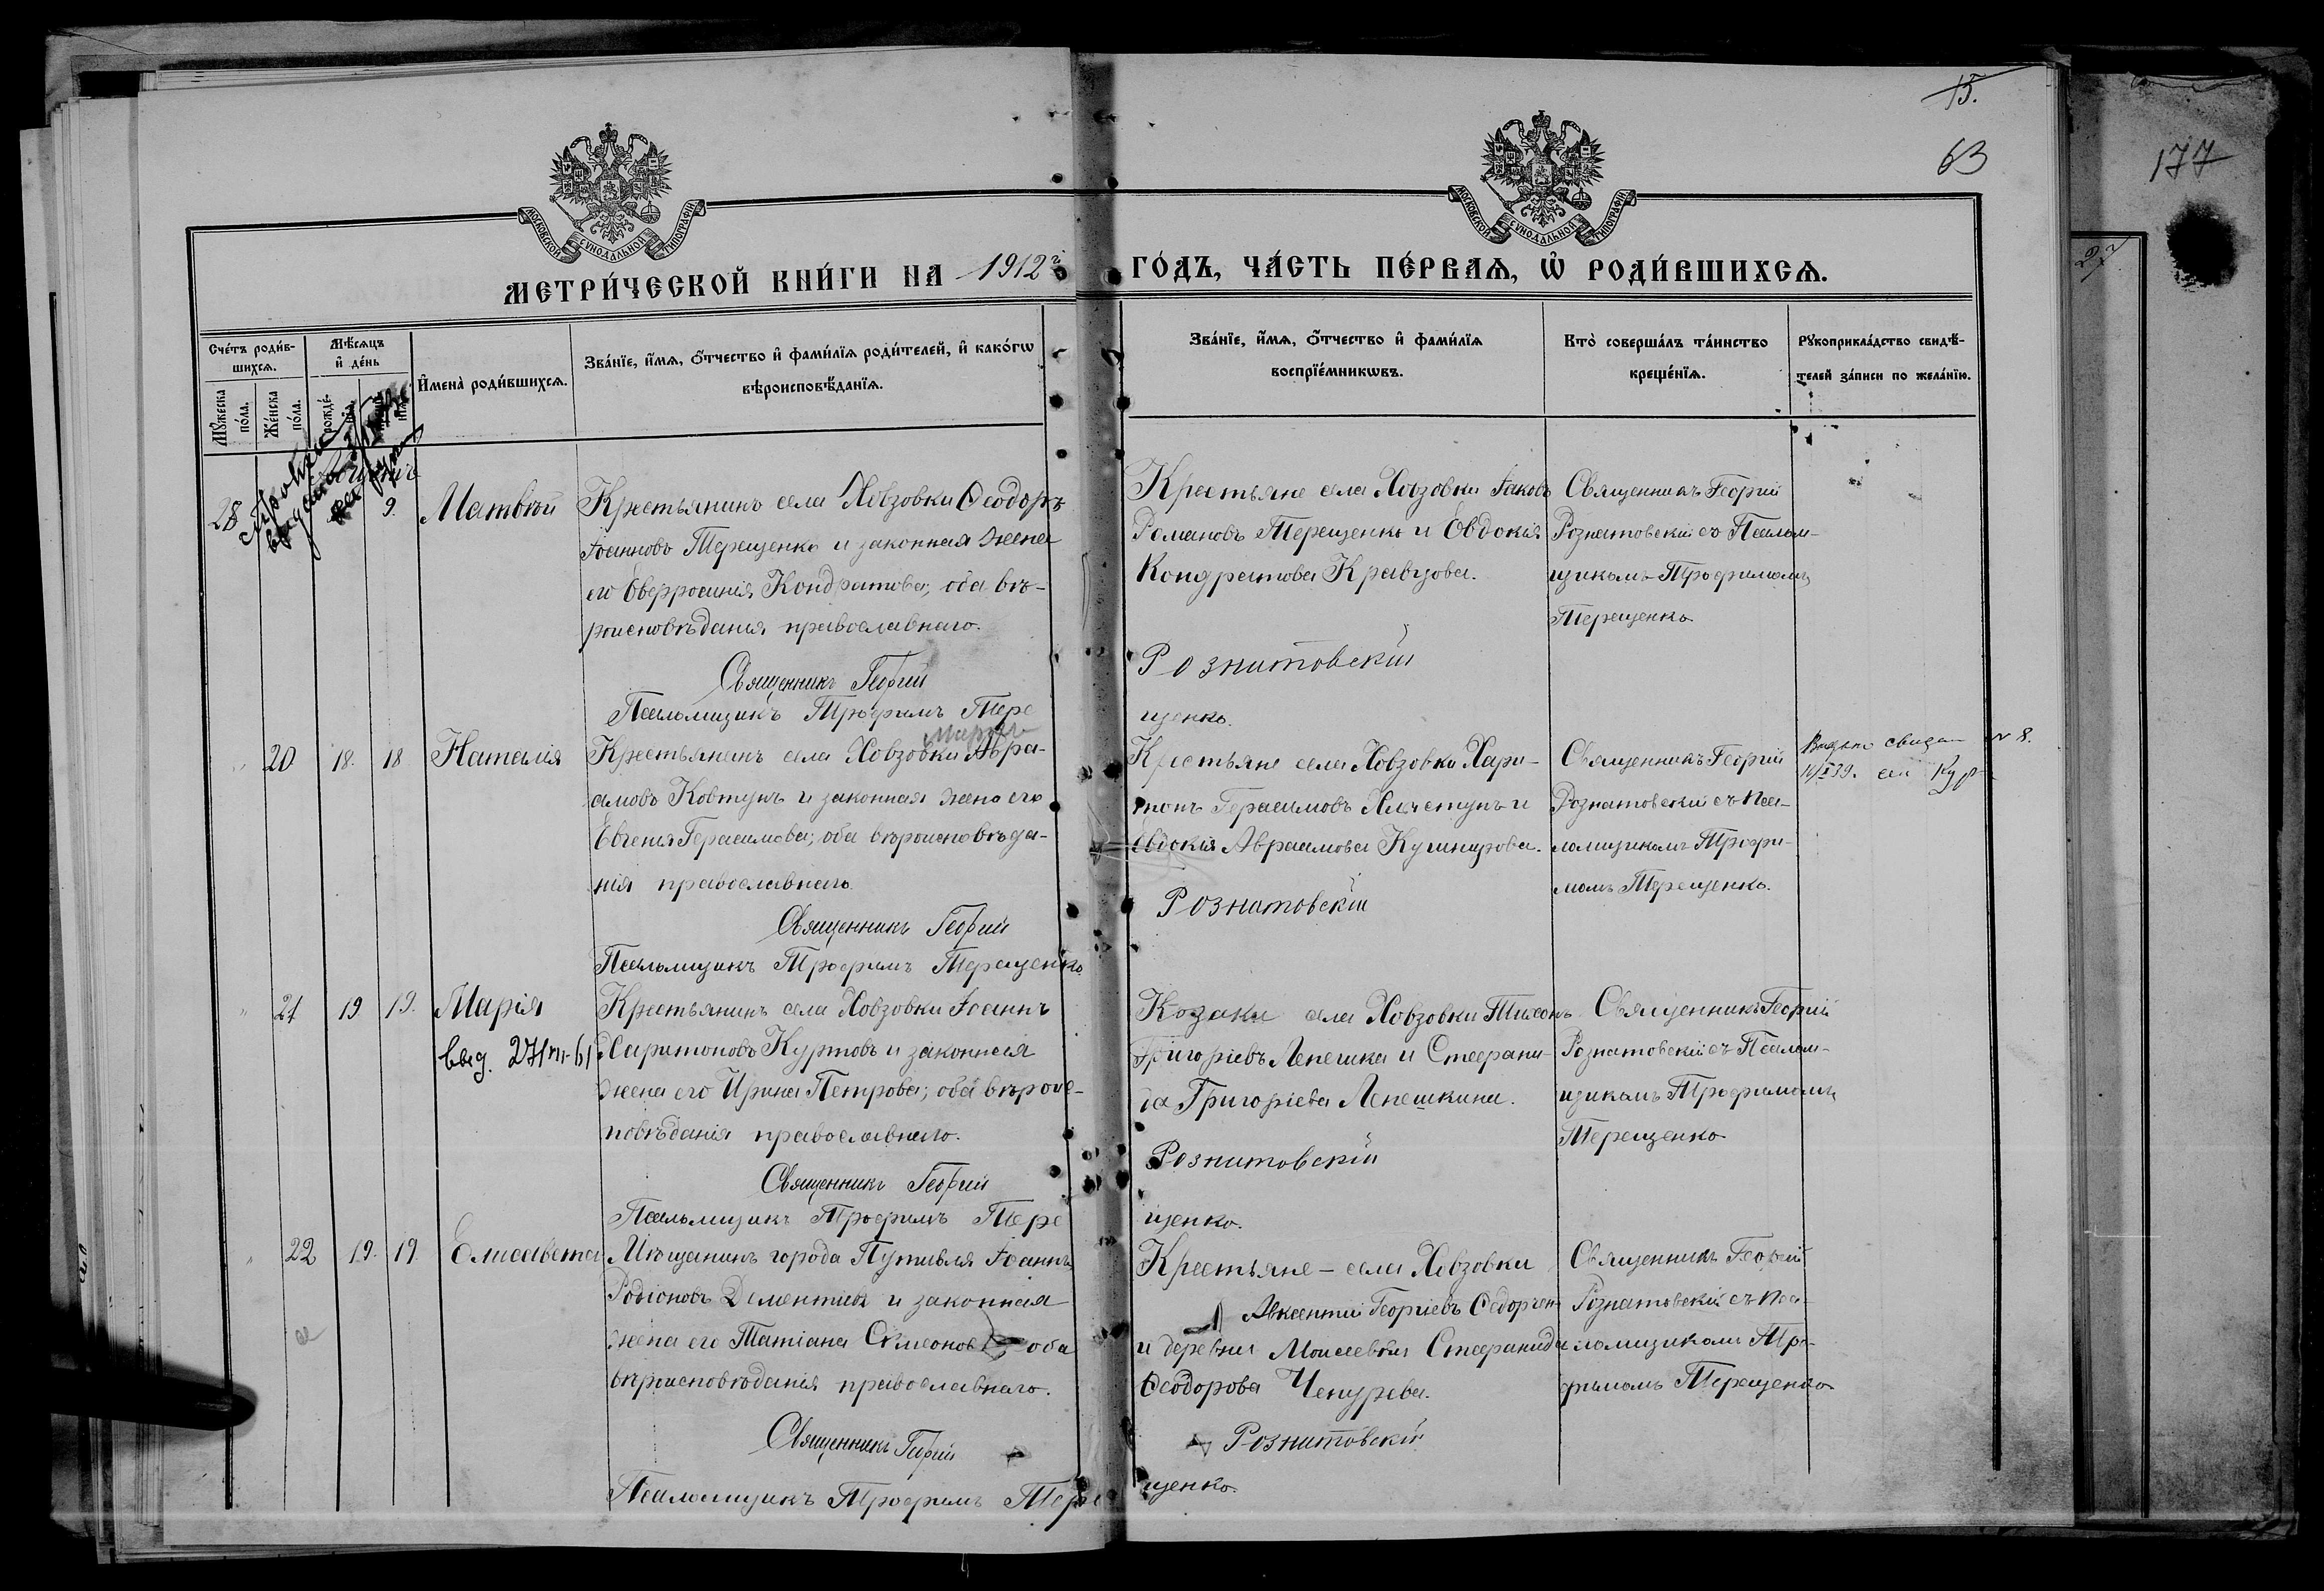 15.
63
177
МОСКОВСКОЙ СѴНОДАЛЬНОЙ ТИПОГРАФІИ
МОСКОВСКОЙ СѴНОДАЛЬНОЙ ТИПОГРАФІИ
МЕТРИ́ЧЕСКОЙ КНИ́ГИ НА 1912 г
ГО́ДЪ, ЧА́СТЬ ПЕ́РВАѦ, Ѡ҆ РОДИ́ВШИХСѦ.
Сче́тъ роди́в-
шихсѧ.
Мꙋ́жеска по́ла.
Же́нска по́ла.
Мѣ́сѧцъ и҆ де́нь
рожде́-
И҆мена̀ роди́вшихсѧ.
Зва́нїе, и҆́мѧ, ѻ҆́тчество и҆ фами́лїѧ роди́телей, и҆ како́гѡ
вѣроисповѣ́данїѧ.
Зва́нїе, и҆́мѧ, ѻ҆́тчество и҆ фами́лїѧ
воспрїе́мникѡвъ.
Кто̀ соверша́лъ та́инство
креще́нїѧ.
Рꙋкоприкла́дство свидѣ́-
телей за́писи по жела́нїю.
28
9.
Матвѣй
Крестьянинъ села Ховзовки Ѳеодоръ
Іоанновъ Терещенко и законная жена
его Евфросинія Кондратова, оба вѣ-
роисповѣданія православнаго.
Священникъ Георгій
Псаломщикъ Трофимъ Тере
Крестьяне села Ховзовки Іаковъ
Романовъ Терещенко и Евдокія
Кондратова Кравцова.
Рознатовскій
щенко.
Священникъ Георгій
Рознатовскій съ Псалом-
щикомъ Трофимомъ
Терещенко
20 18. 18 Наталія
Крестьянинъ села Ховзовки Авра-
амовъ Ковтунъ и законная жена его
Евгенія Герасимова; оба вѣроисповѣда-
нія православнаго.
Священникъ Георгій
Псаломщикъ Трофимъ Терещенко
Крестьяне села Ховзовки Хари-
тонъ Герасимовъ и
Евдокія Авраамова Кушнирова.
Рознатовскій
Священникъ Георгій
Рознатовскій съ Пса-
ломщикомъ Трофи-
момъ Терещенко.
№ 8.
21 19 19. Марія
выд. 27/VII-61
Крестьянинъ села Ховзовки Іоаннъ
Харитоновъ Куртовъ и законная
жена его Ирина Петрова; оба вѣроис-
повѣданія православнаго.
Священникъ Георгій
Псаломщикъ Трофимъ Тере
Козаки села Ховзовки
Григоріевъ Лепешка и Стефани-
да Григоріева Лепешкина.
Рознатовскій
щенко.
Священникъ Георгій
Рознатовскій съ Псалом-
щикомъ Трофимомъ
Терещенко
22 19. 19. Елисавета
Мѣщанинъ города Путивля Іоаннъ
Родіоновъ и законная
жена его Татіана Симеонова, оба
вѣроисповѣданія православнаго.
Священникъ Георгій
Псаломщикъ Трофимъ Тере
Крестьяне - села Ховзовки
Авксентій Георгіевъ
и деревни Моисеевки Стефанида
Ѳеодорова
Рознатовскій
щенко.
Священникъ Георгій
Рознатовскій съ Пса-
ломщикомъ Тро-
фимомъ Терещенко